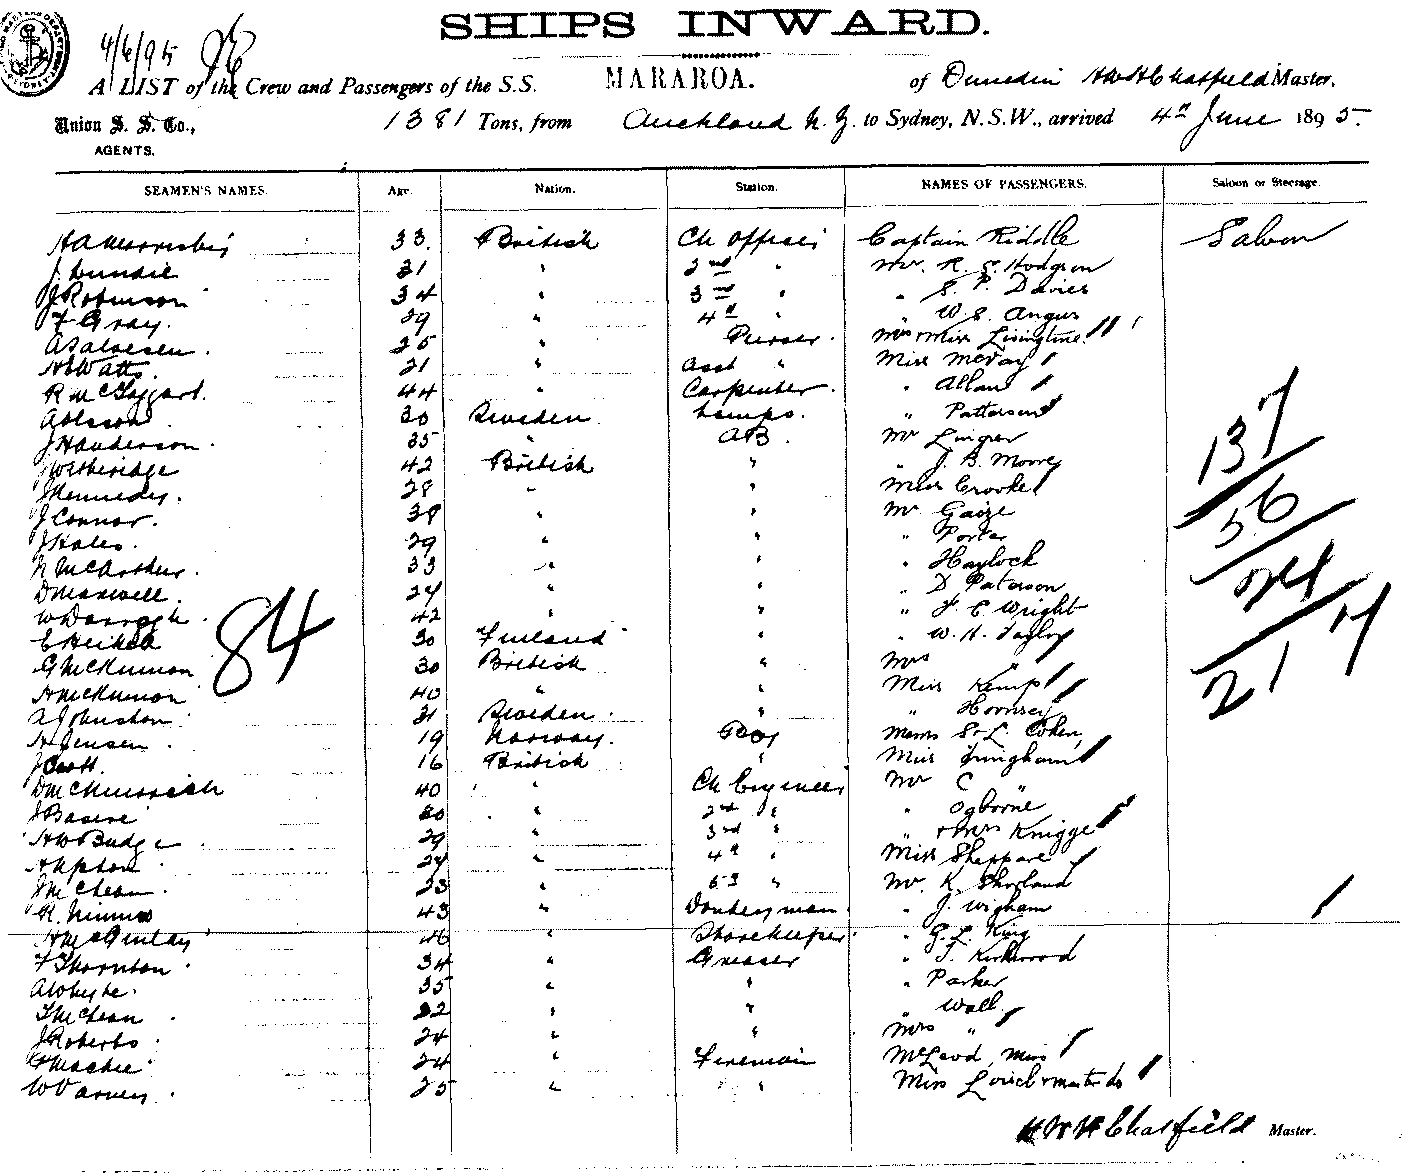 SHIPS INWARD.
4/6/95
A LIST of the Crew and Passengers of the S.S. MARAROA. of Dunedin H W H Chatfield Master.
Union S. S. Co., 1381 Tons, from Auckland N. Z. to Sydney, N.S.W., arrived 4th June 1895.
AGENTS.
SEAMEN'S NAMES. Age. Nation. Station. NAMES OF PASSENGERS. Saloon or Steerage.
33. British Ch Officer Captain Riddle Saloon
J. Dundie 31 " 2nd " Mr. R. S. Hodgson
J Robinson 34 " 3rd " " S. P. Davies
F Gray. 29 " 4th " " W. S. Angus
25 " Purser. Mrs & Miss Livingstone
H Watts. 21 " Asst " Miss McKay
R McTaggart. 44 " Carpenter. " Allan
A Olsson 30 Sweden Lamps. " Patterson
J Handerson. 35 " AB. Mr Lingren
J Wetheridge 42 British " " J. B. Moore
J Kennedy. 28 " " Miss Crooke
J Connor. 38 " " Mr Gaize
J Hales. 29 " " " Porter
N McArthur. 33 " " " Haylock
D Maxwell. 24 " " " D Paterson
W Darragh. 42 " " " F. C. Wright
30 Finland " " W. H. Taylor
G McKinnon 30 British " Mrs "
H McKinnon 40 " " Miss Kemp
A Johnston 31 Sweden. " " Hornsey
H Jensen. 19 Norway. Boy Messrs S & L. Cohen
J Scott. 16 British " Miss Fringham
40 " Ch Engineer Mr C "
J Basire 30 " 2nd " " Ogborne
H W Budge 29 " 3rd " " & Mrs Knigge
H Upton 24 " 4th " Miss Sheppard
J McLean. 23 " 5th " Mr. K. Shorland
R. Nimmo 43 " Donkeyman. " J. Wigham
H McGinlay 46 " Storekeeper. " G. L. King
F Thornton 34 " Greaser " T. Kirkwood
A Whyte. 35 " " " Parker
T McLean 32 " " " Wall.
J Roberts. 24 " " Mrs "
G Mackie 24 " Fireman McLeod, Miss
W Varney. 25 " " Miss
84
137
56
21
H W H Chatfield Master.